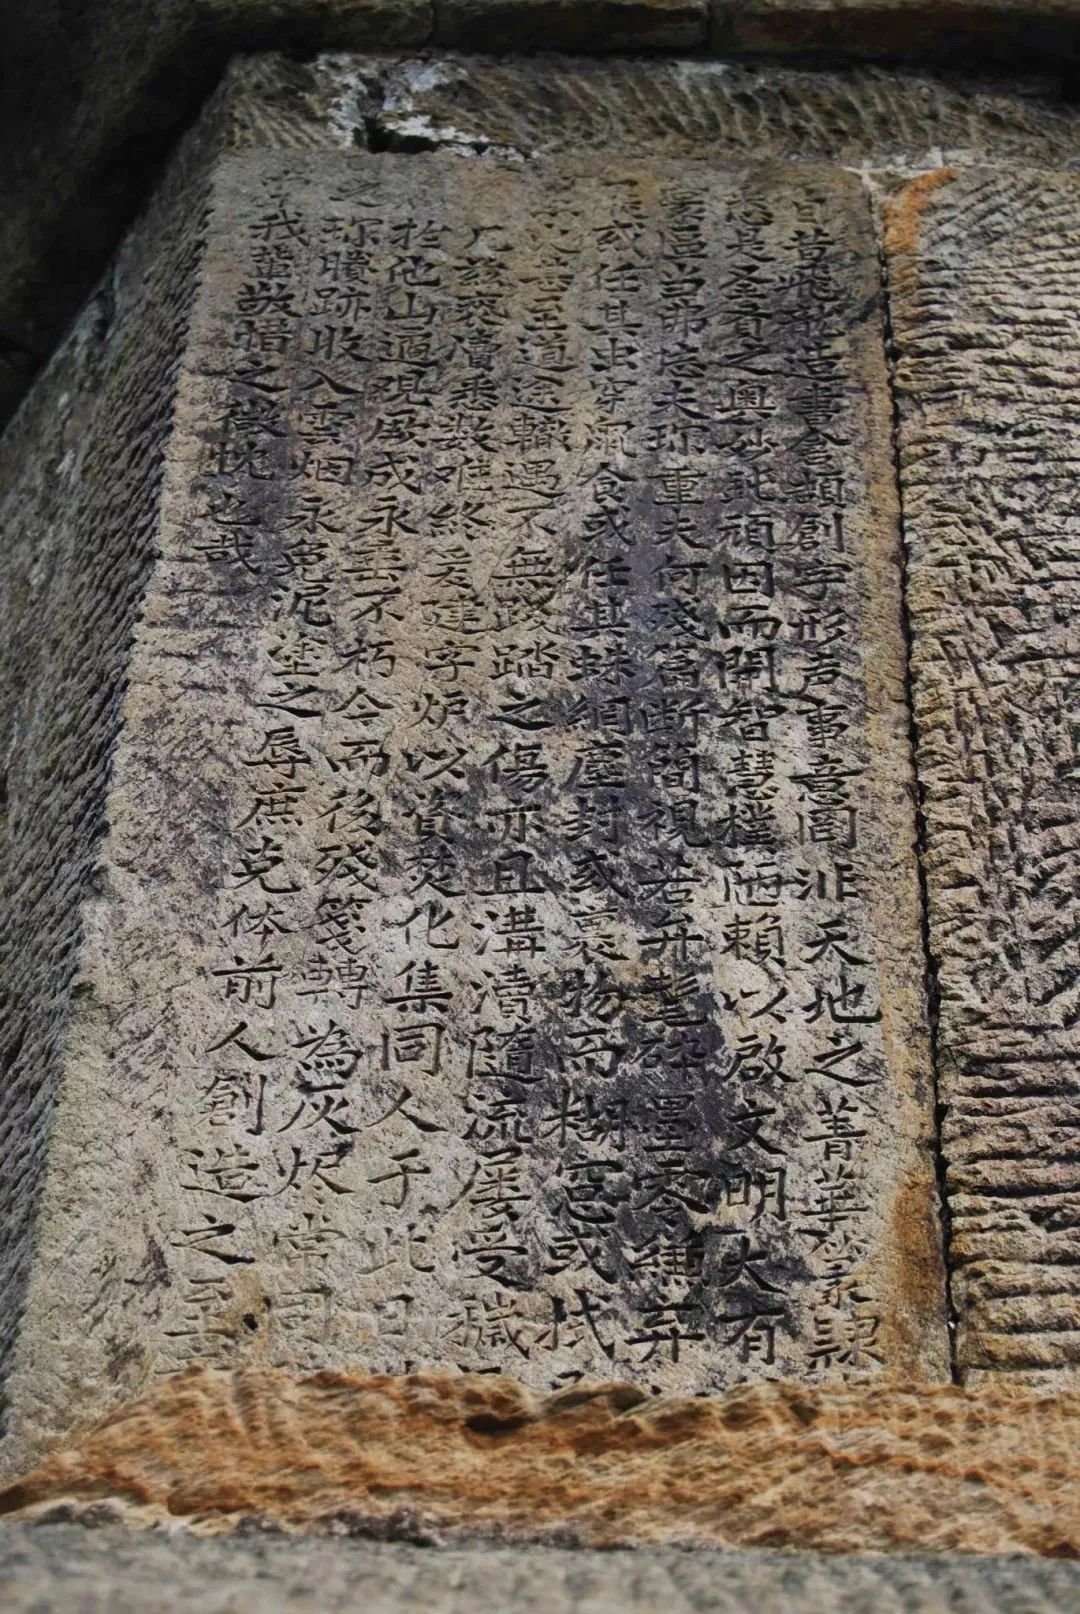 昔飛龍造書倉頡創字形声事意啚非天地之菁華篆隸
是圣賢之奧妙玩頑因而開智慧樸陋賴以啟文明大有
區當弗忘夫珍重夫何殘篇断簡視若弁髦碎墨零縑弃
或任其虫穿鼠食或任其蛛網塵封或裹物而糊窓或拭
甚至道途轍遇不無踐踏之傷亦且溝瀆隨流屡受穢
兹褻瀆悉數难終爰建字炉以資焚化集同人于此日
於他山適观厥成永垂不朽今而後殘箋轉為灰烬常同
之珎賸跡收入雲烟永免泥塗之辱庶克体前人創造之至
我輩敬惜之微忱也哉